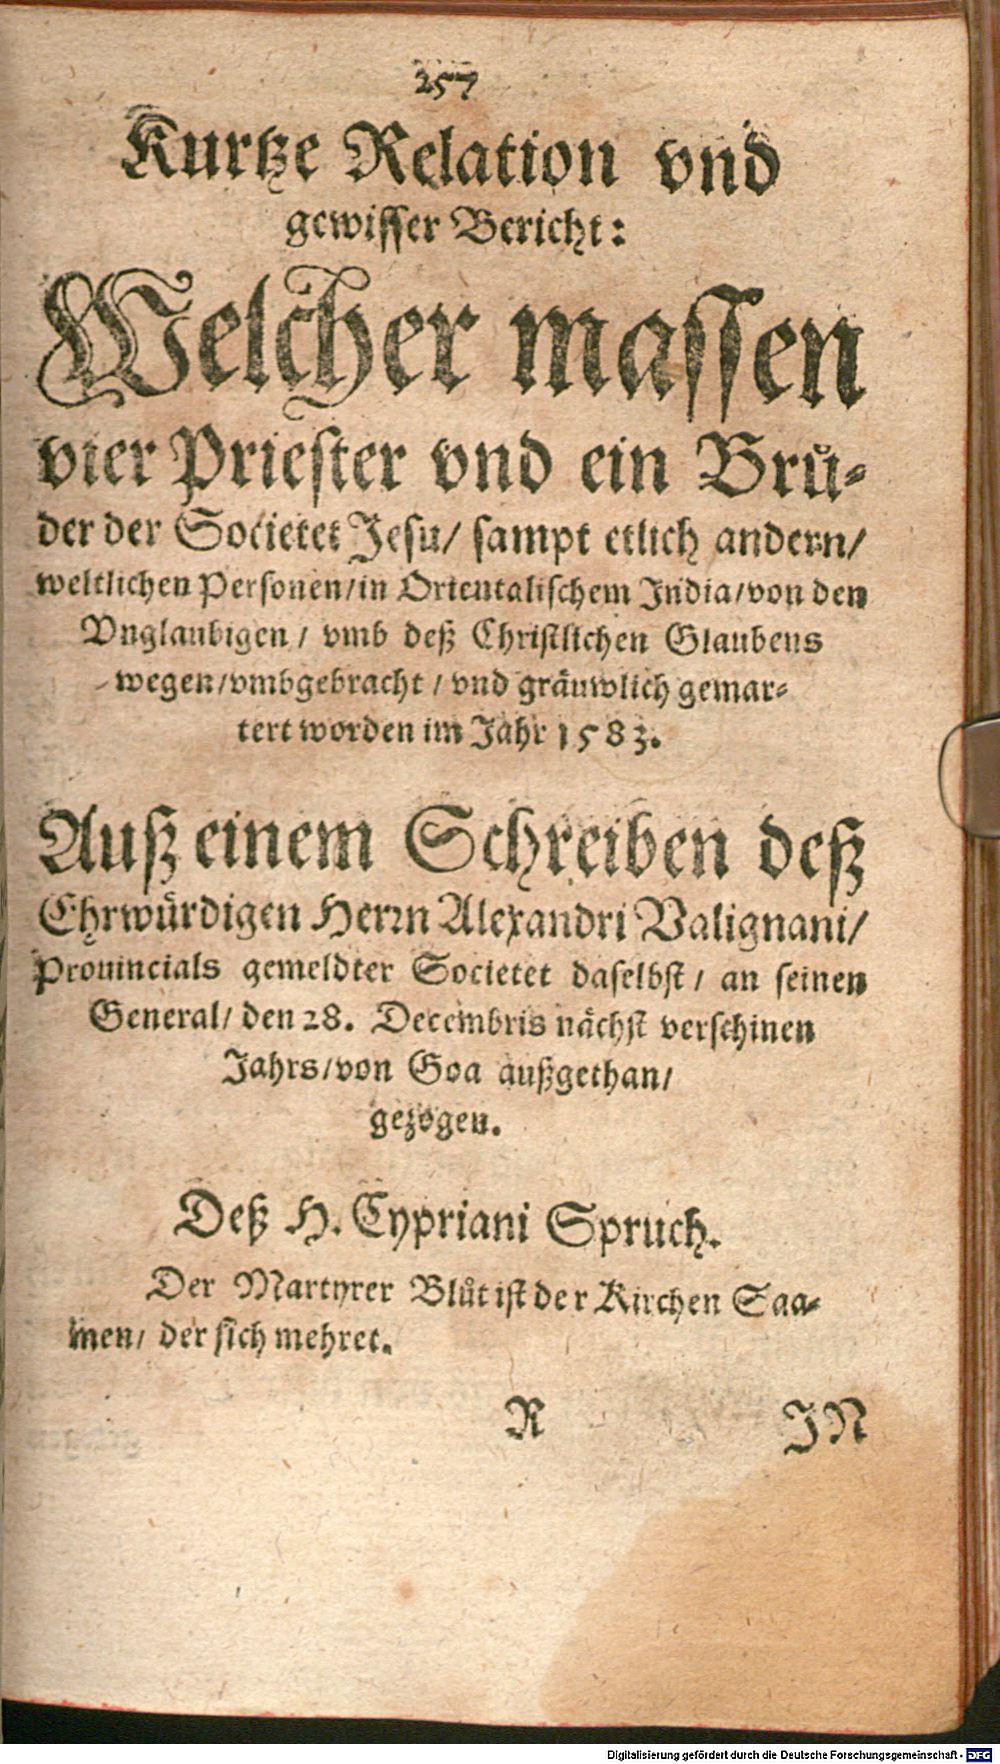 257
Kurtze Relation vnd
gewisser Bericht:
Welcher massen
vier Priester vnd ein Brů-
der der Societet Jesu/ sampt etlich andern/
weltlichen Personen/in Orientalischem India/von den
Vnglaubigen/ vmb deß Christlichen Glaubens
wegen/vmbgebracht/ vnd gräuwlich gemar-
tert worden im Jahr 1583.
Auß einem Schreiben deß
Ehrwürdigen Herrn Alexandri Valignani/
Prouincials gemeldter Societet daselbst/ an seinen
General/ den 28. Decembris nächst verschinen
Jahrs/von Goa außgethan/
gezogen.
Deß H. Cypriani Spruch.
Der Martyrer Blůt ist der Kirchen Saa-
men/ der sich mehret.
R JN
Digitalisierung gefördert durch die Deutsche Forschungsgemeinschaft - DFG